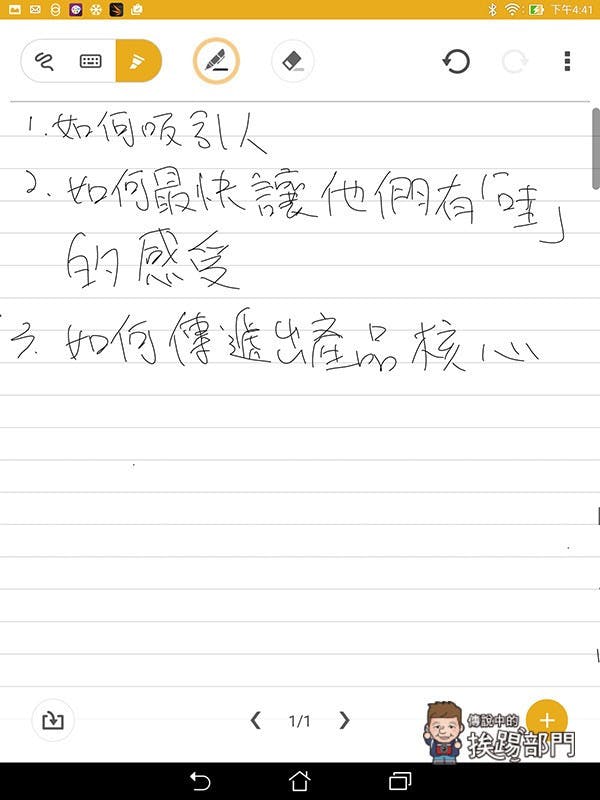 下午4:41
1.如何吸引人
2.如何最快讓他們有「哇」
的感受
3.如何傳遞出產品核心
1/1
傳說中的
挨踢部門